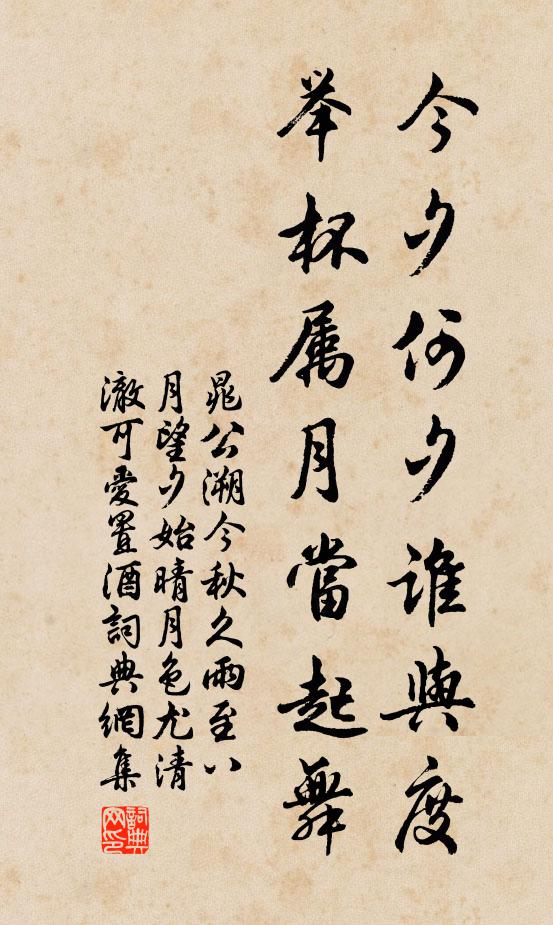 今夕何夕誰與度
举杯属月當起舞
晁公溯今秋久雨至八
月望夕始晴月色尤清
澈可愛置酒詞典網集
詞典
网印